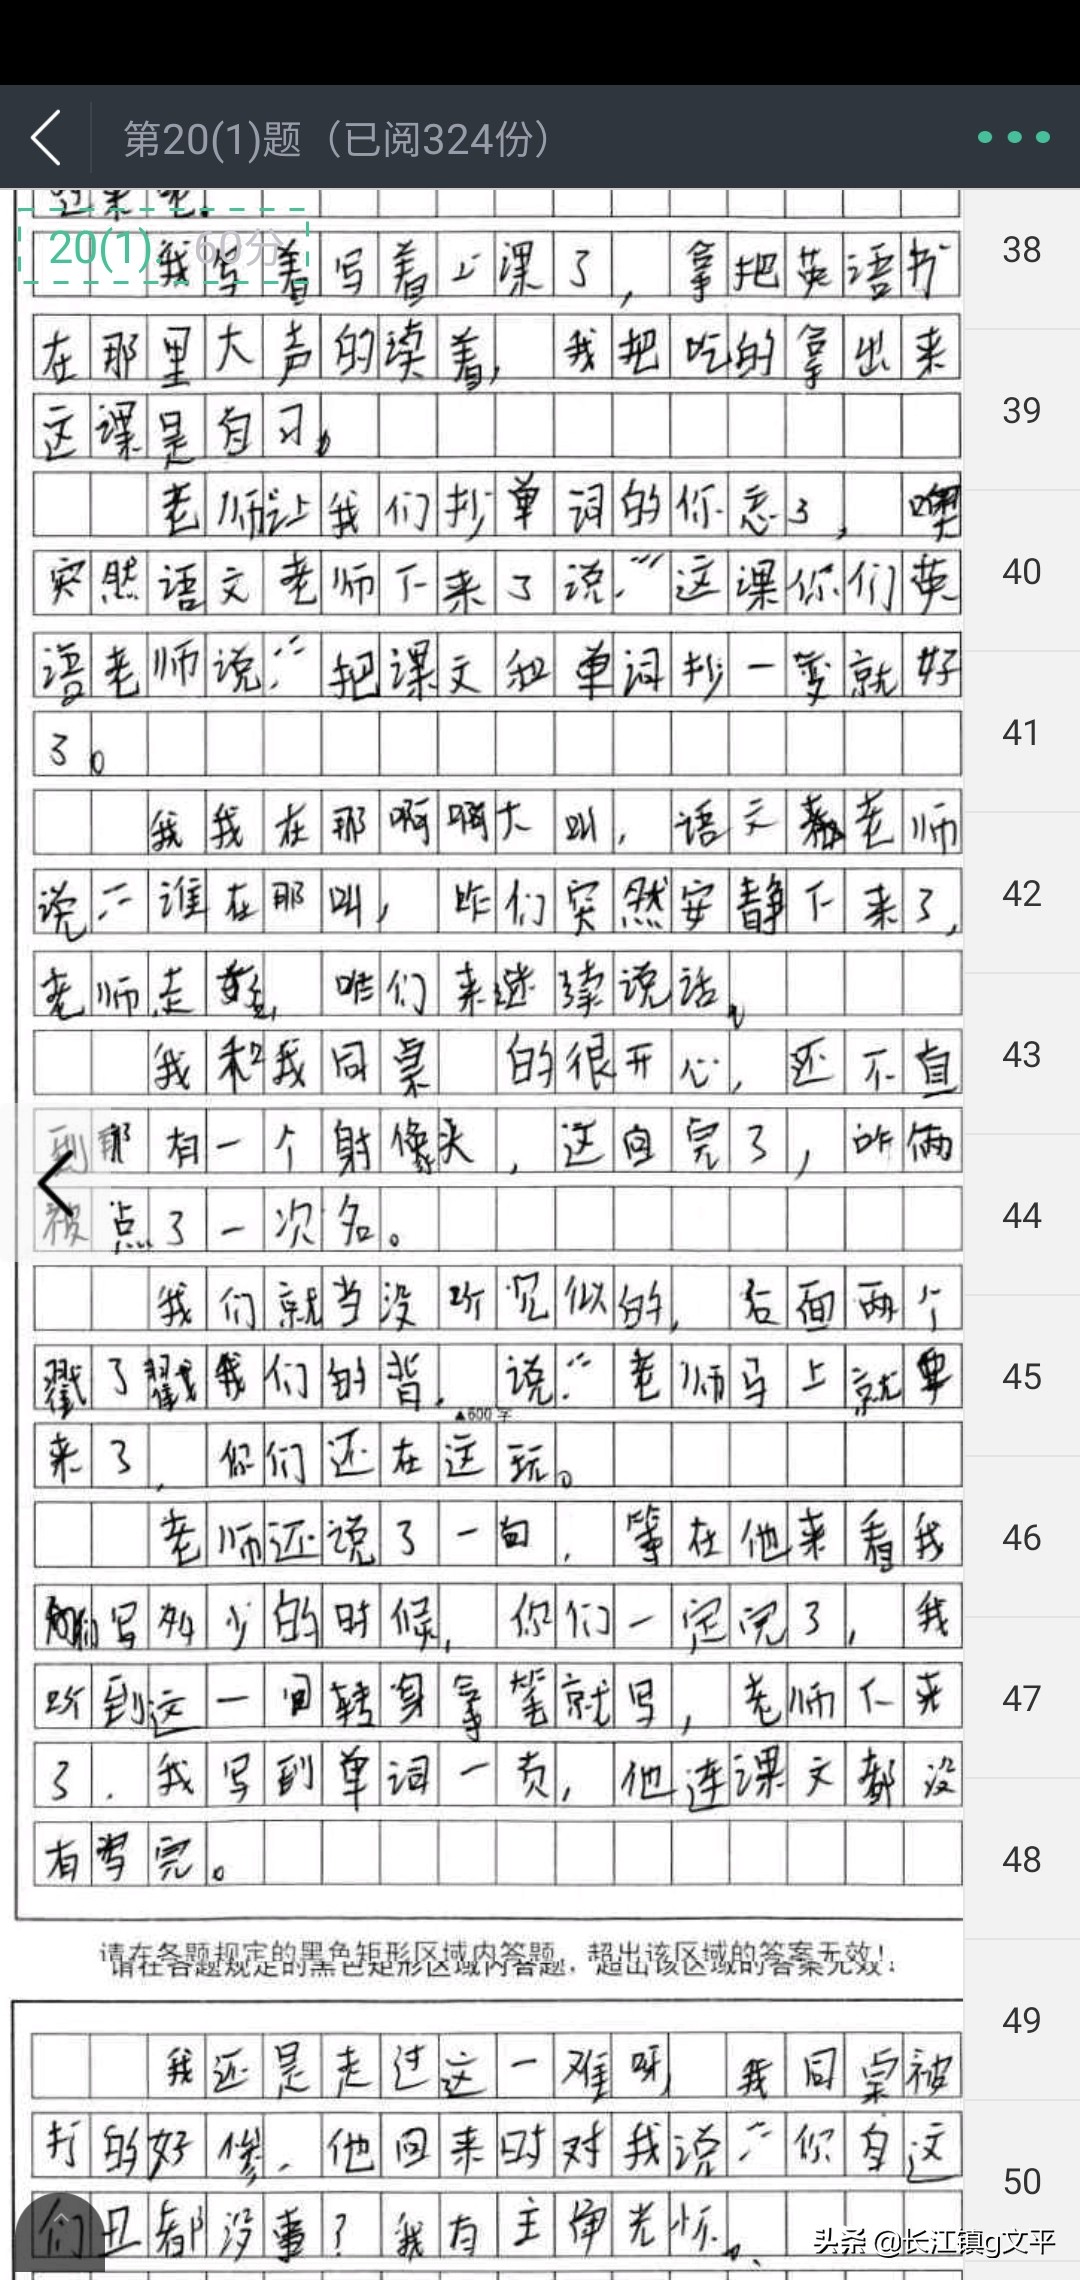 第20(1)题（已阅324份）
20(1). 60分
我写着写着上课了，拿把英语书
在那里大声的读着，我把吃的拿出来
这课是自习。
老师让我们抄单词的你忘了，噢
突然语文老师下来了说："这课你们英
语老师说："把课文和单词抄一变就好
了。
我我在那啊啊大叫，语文老师
说："谁在那叫，咋们突然安静下来了，
老师走，咱们来继续说话。
我和我同桌 的很开心，还不直
到那有一个射像头，这回完了，咋俩
被点了一次名。
我们就当没听见似的，后面两个
戳了戳我们的背。说："老师马上就要
▲600字
来了，你们还在这玩。
老师还说了一句，等在他来看我
们写多少的时候，你们一定完了，我
听到这一回转身拿笔就写，老师下来
了．我写到单词一页，他连课文都没
有写完。
请在各题规定的黑色矩形区域内答题，超出该区域的答案无效！
请在各题规定的黑色矩形区域内答题，超出该区域的答案无效！
我还是走过这一难呀，我同桌被
打的好惨．他回来时对我说："你自这
们丑都没事？我有主角光怀。
38
39
40
41
42
43
44
45
46
47
48
49
50
头条 @长江镇g文平